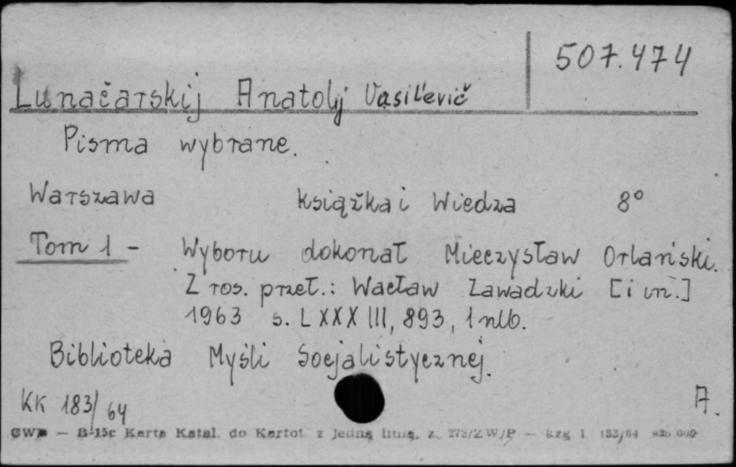 507.474
Lunačarskij Anatolij Vasil'evič
Pisma wybrane.
Warszawa Książka i Wiedza 8°
Tom 1 - Wyboru dokonał Mieczysław Orlański.
Z ros. przeł.: Wacław Zawadzki [i in.]
1963 s. LXXXIII, 893, 1 nlb.
Biblioteka Myśli Socjalistycznej.
KK 183/64 A.
CWD — B-15c Karta Katal. do Kartot. z jedną linią, z. 273/ZW/P — Kzg 1 153/64